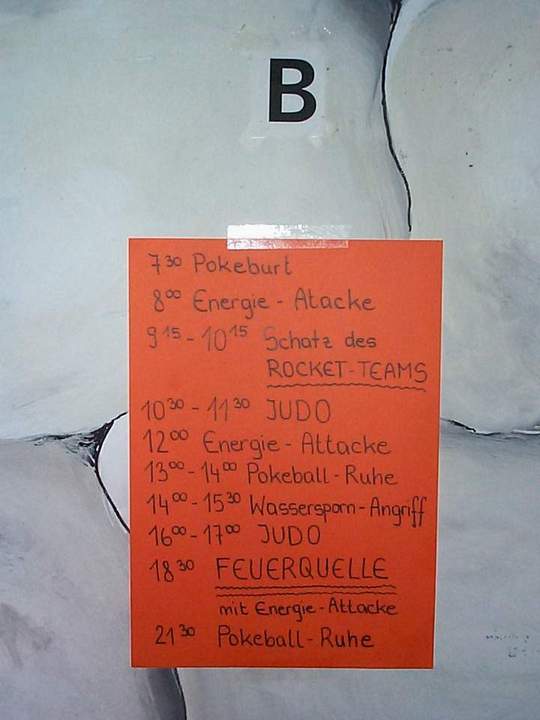 B
7³⁰ Pokeburt
8⁰⁰ Energie - Atacke
9¹⁵ - 10¹⁵ Schatz des
ROCKET-TEAMS
10³⁰ - 11³⁰ JUDO
12⁰⁰ Energie - Attacke
13⁰⁰ - 14⁰⁰ Pokeball - Ruhe
14⁰⁰ - 15³⁰ Wassersporn - Angriff
16⁰⁰ - 17⁰⁰ JUDO
18³⁰ FEUERQUELLE
mit Energie - Attacke
21³⁰ Pokeball - Ruhe